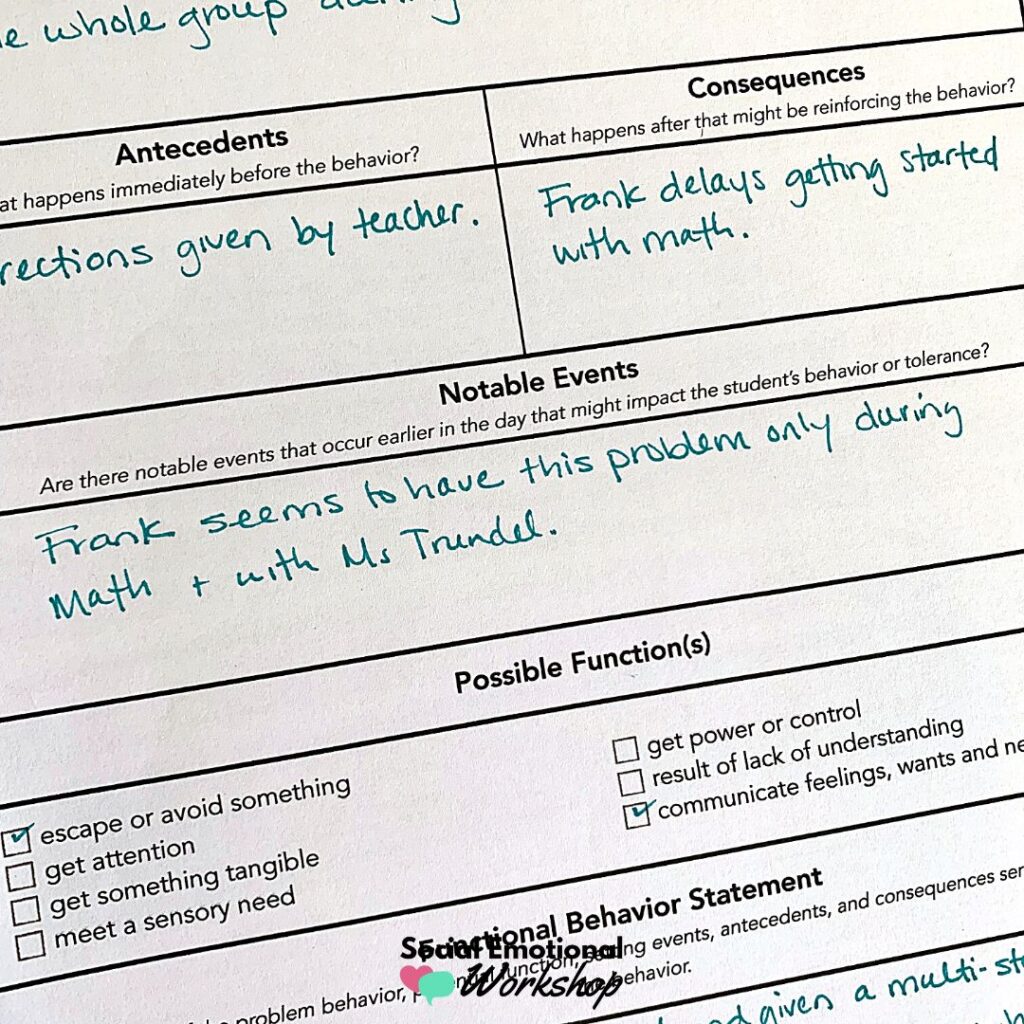 whole group
Antecedents
happens immediately before the behavior?
given by teacher.
Consequences
What happens after that might be reinforcing the behavior?
Frank delays getting started
with math.
Notable Events
Are there notable events that occur earlier in the day that might impact the student's behavior or tolerance?
Frank seems to have this problem only during
Math + with Ms Trundel.
Possible Function(s)
escape or avoid something
get attention
get something tangible
meet a sensory need
get power or control
result of lack of understanding
communicate feelings, wants and
Functional Behavior Statement
problem behavior, function, events, antecedents, and consequences
behavior.
given a
Social Emotional
Workshop